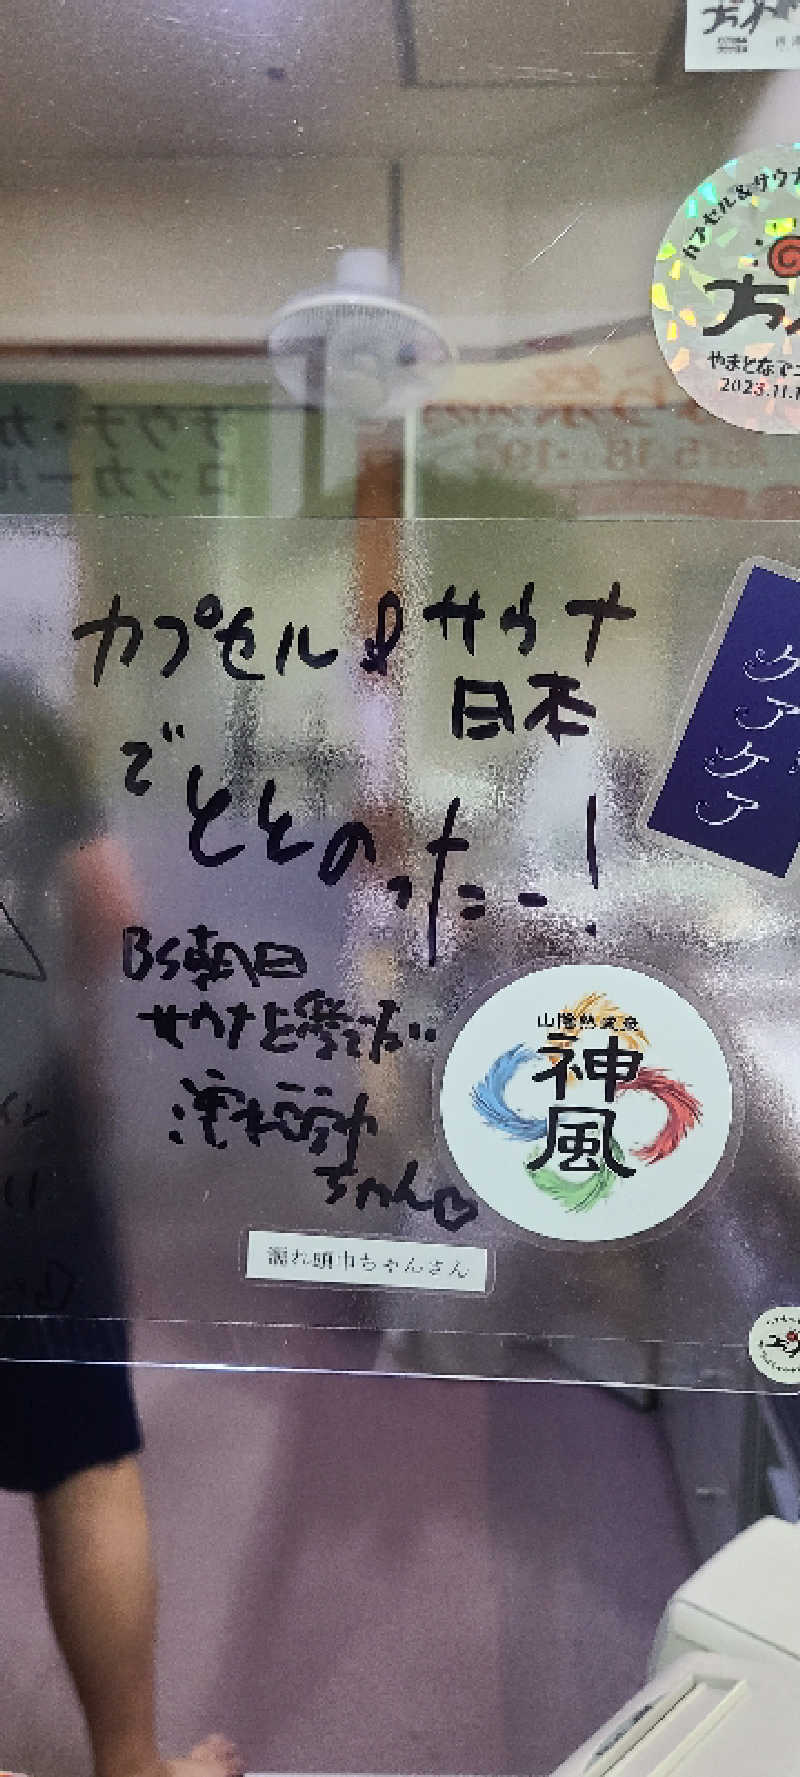 カプセル&サウナ
やまとなでシ
2023.11.1
チウナ・カ
ロッカール
カプセル&サウナ
日本
で
ととのったー!
ケア
ケア
BS朝日
サウナを愛でたい
濡れ頭巾
ちゃん♡
山陰熱波魚
神
風
濡れ頭巾ちゃんさん